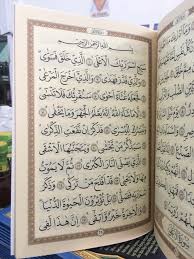 بِسْمِ اللَّهِ الرَّحْمَٰنِ الرَّحِيمِ
سَبِّحِ اسْمَ رَبِّكَ الْأَعْلَى ۝ الَّذِي خَلَقَ فَسَوَّىٰ
۝ وَالَّذِي قَدَّرَ فَهَدَىٰ ۝ وَالَّذِي أَخْرَجَ الْمَرْعَىٰ
۝ فَجَعَلَهُ غُثَاءً أَحْوَىٰ ۝ سَنُقْرِئُكَ فَلَا تَنْسَىٰ
۝ إِلَّا مَا شَاءَ اللَّهُ إِنَّهُ يَعْلَمُ الْجَهْرَ وَمَا يَخْفَىٰ
۝ وَنُيَسِّرُكَ لِلْيُسْرَىٰ ۝ فَذَكِّرْ إِنْ نَفَعَتِ الذِّكْرَىٰ
۝ سَيَذَّكَّرُ مَنْ يَخْشَىٰ ۝ وَيَتَجَنَّبُهَا الْأَشْقَى
۝ الَّذِي يَصْلَى النَّارَ الْكُبْرَىٰ ۝ ثُمَّ لَا يَمُوتُ
فِيهَا وَلَا يَحْيَىٰ ۝ قَدْ أَفْلَحَ مَنْ تَزَكَّىٰ ۝ وَذَكَرَ
اسْمَ رَبِّهِ فَصَلَّىٰ ۝ بَلْ تُؤْثِرُونَ الْحَيَاةَ الدُّنْيَا
۝ وَالْآخِرَةُ خَيْرٌ وَأَبْقَىٰ ۝ إِنَّ هَٰذَا لَفِي